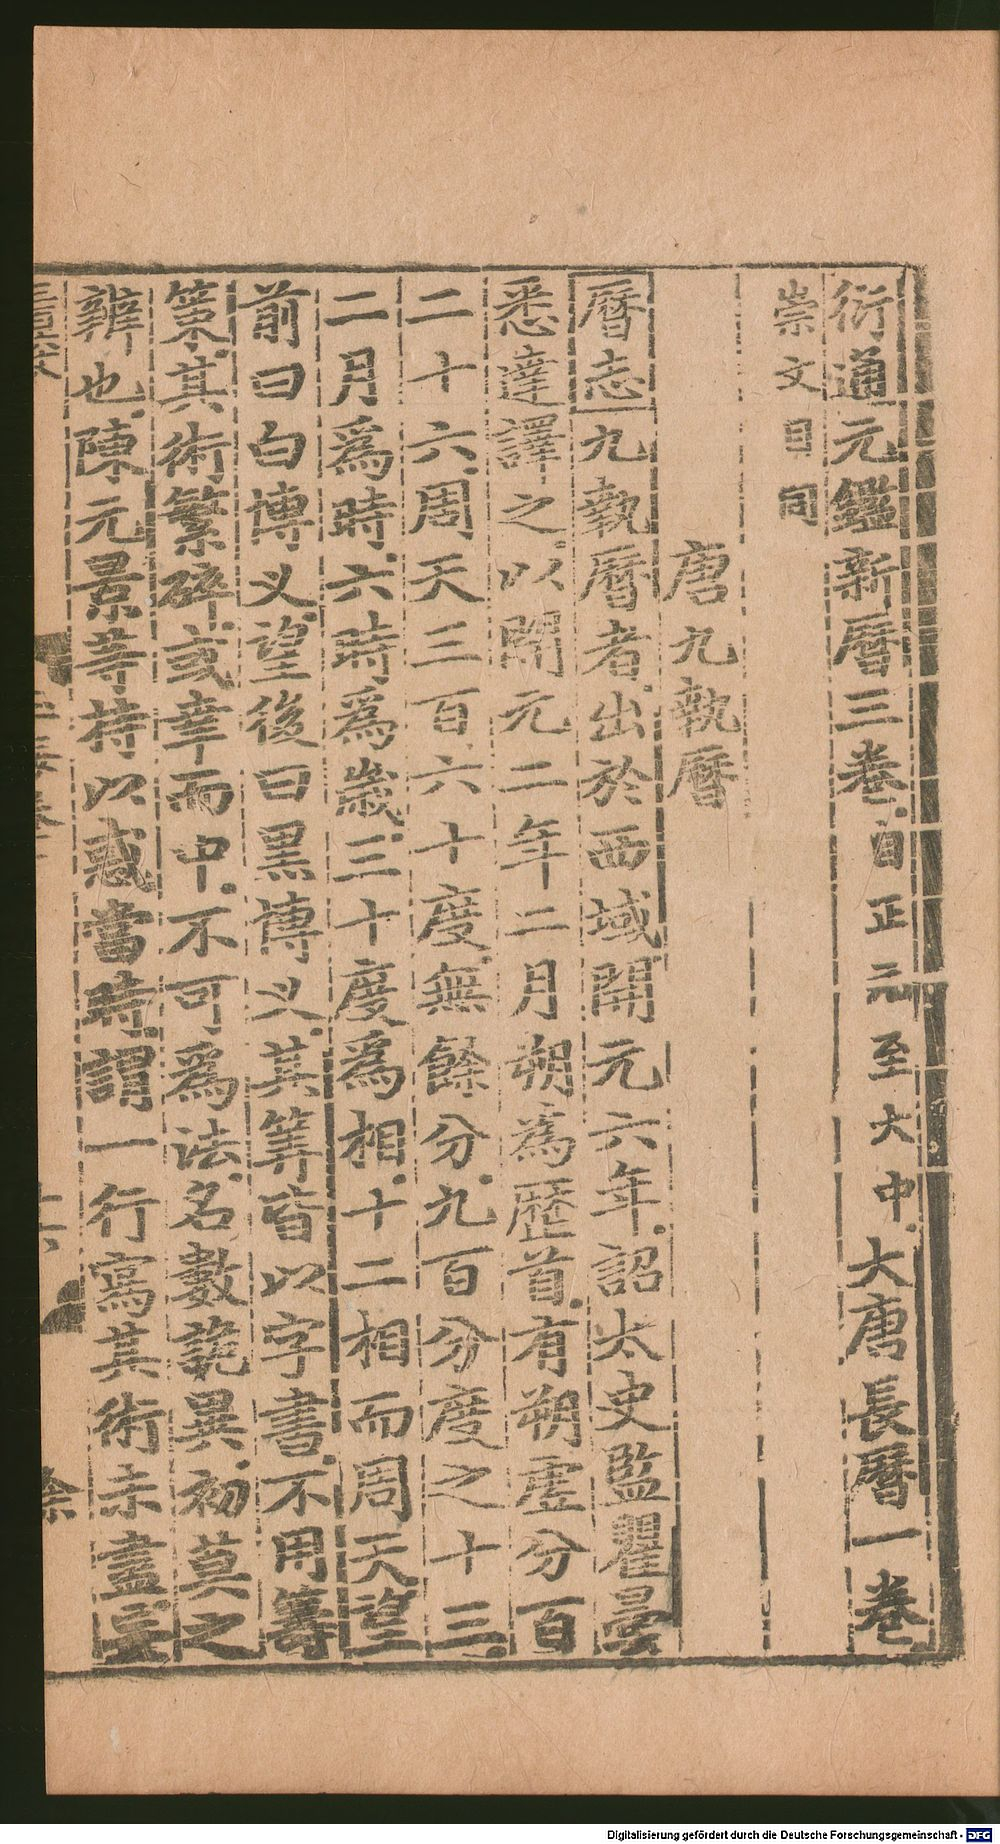 衍通元鑑新曆三卷自正元至大中大唐長曆一卷
崇文目同
唐九執曆
曆志九執曆者出於西域開元六年詔太史監瞿曇
悉達譯之以開元二年二月朔為歷首有朔虛分百
二十六周天三百六十度無餘分九百分度之十三
二月爲時六時爲歲三十度爲相十二相而周天望
前曰白博义望後曰黑博义其筭皆以字書不用籌
策其術繁碎或幸而中不可爲法名數詭異初莫之
辨也陳元景等持以惑當時謂一行寫其術未盡妄
Digitalisierung gefördert durch die Deutsche Forschungsgemeinschaft - DFG